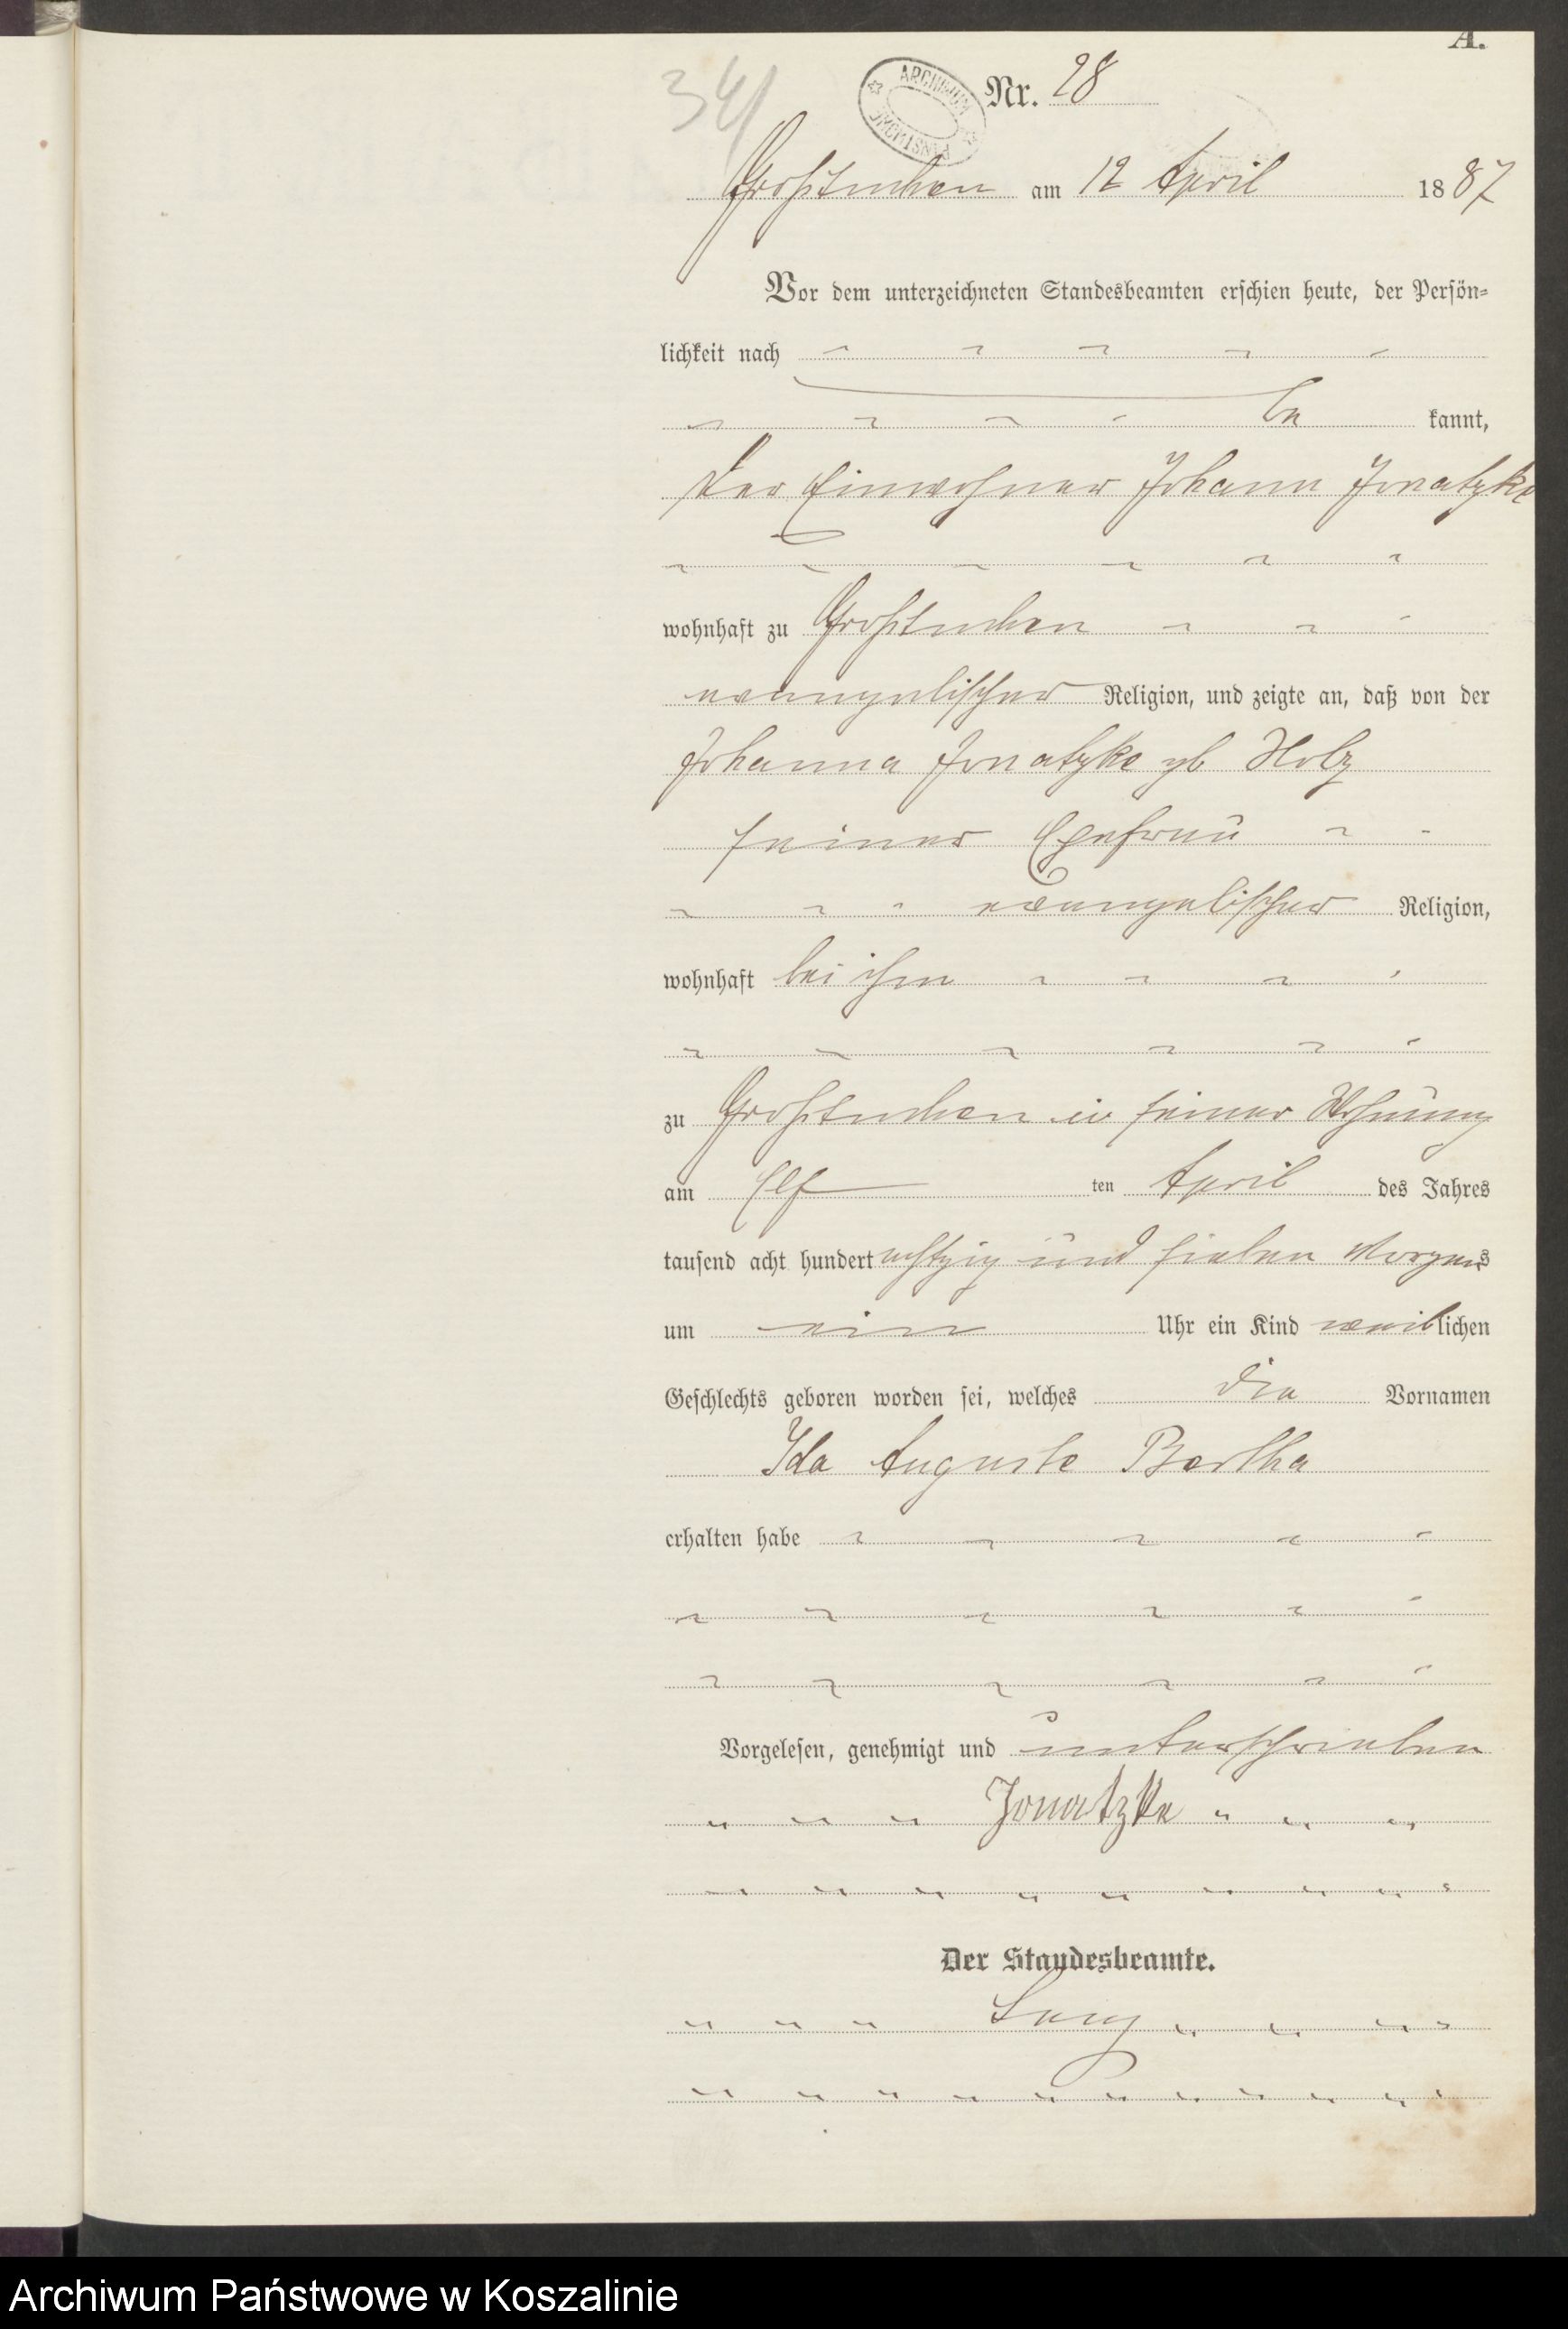 A.
34
ARCHIWUM PAŃSTWOWE
Nr. 28
Großtuchen am 12 April 1887
Vor dem unterzeichneten Standesbeamten erschien heute, der Persön-
lichkeit nach
be kannt,
der Einwohner Johann Jonatzke
wohnhaft zu Großtuchen
evangelischer Religion, und zeigte an, daß von der
Johanna Jonatzke gb Holz
seiner Ehefrau
evangelischer Religion,
wohnhaft bei ihm
zu Großtuchen in seiner Wohnung
am Elf ten April des Jahres
tausend acht hundert achtzig und sieben Morgens
um ein Uhr ein Kind weiblichen
Geschlechts geboren worden sei, welches die Vornamen
Ida Auguste Bertha
erhalten habe
Vorgelesen, genehmigt und unterschrieben
Jonatzke
Der Standesbeamte.
Archiwum Państwowe w Koszalinie